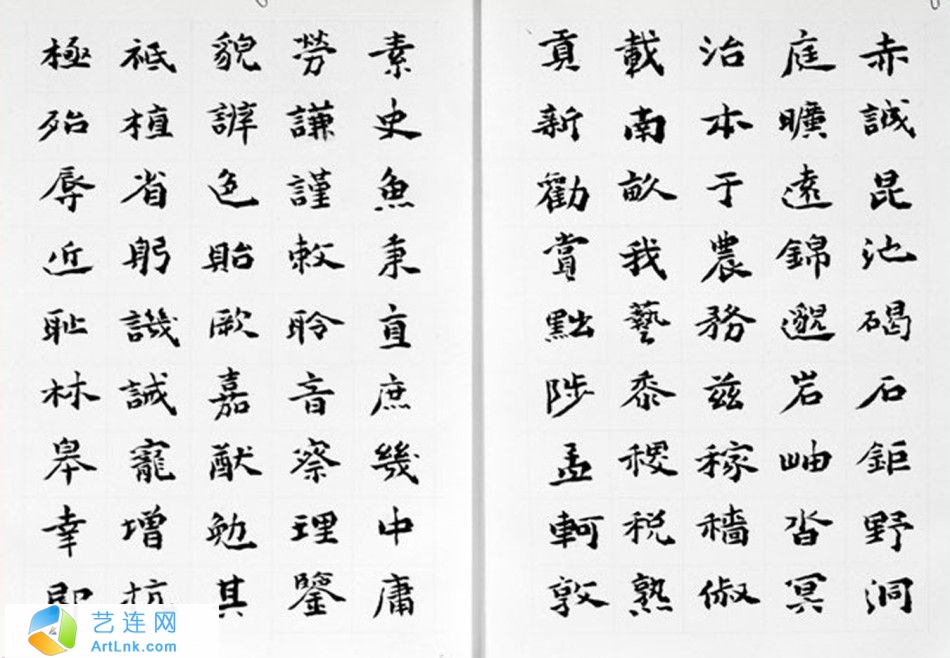 赤誠昆池碣石鉅野洞
庭曠遠錦邈岩岫沓冥
治本于農務茲稼穡俶
載南畝我藝黍稷税熟
貢新勸賞黜陟孟軻敦
素史魚秉直庶幾中庸
勞謙謹敕聆音察理鑒
貌辨色貽厥嘉猷勉其
祗植省躬譏誡寵增抗
極殆辱近耻林皋幸即
艺连网
ArtLnk.com